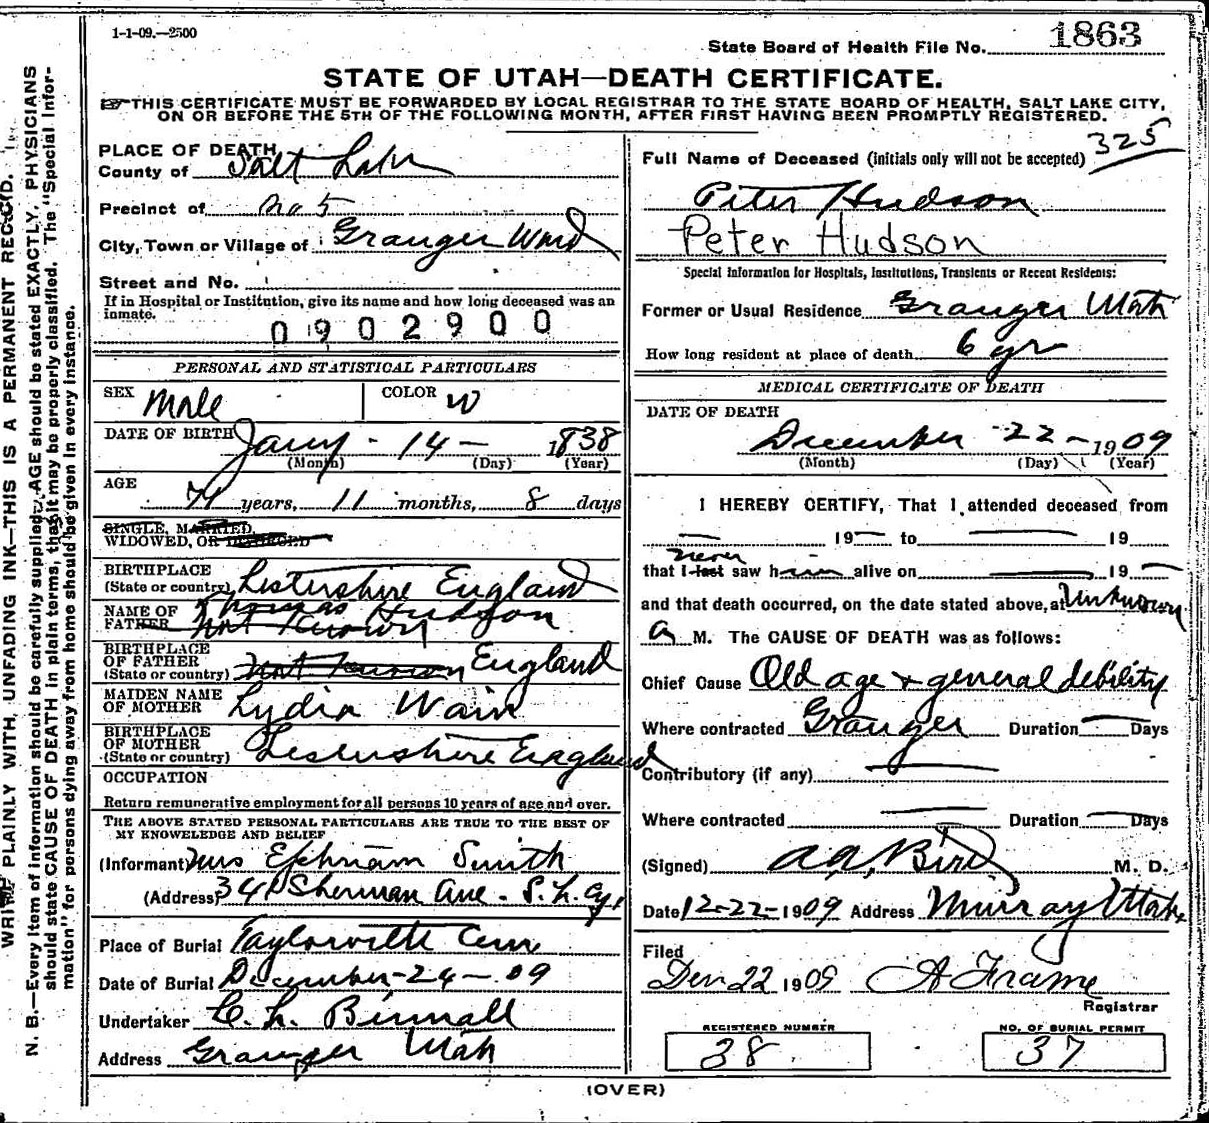 1-1-09.—2500
State Board of Health File No. 1863
STATE OF UTAH—DEATH CERTIFICATE.
THIS CERTIFICATE MUST BE FORWARDED BY LOCAL REGISTRAR TO THE STATE BOARD OF HEALTH, SALT LAKE CITY,
ON OR BEFORE THE 5TH OF THE FOLLOWING MONTH, AFTER FIRST HAVING BEEN PROMPTLY REGISTERED.
WRITE PLAINLY WITH, UNFADING INK—THIS IS A PERMANENT RECORD.
N. B.—Every item of information should be carefully supplied. AGE should be stated EXACTLY, PHYSICIANS
should state CAUSE OF DEATH in plain terms, that it may be properly classified. The "Special Infor-
mation" for persons dying away from home should be given in every instance.
PLACE OF DEATH
County of Salt Lake
Precinct of No 5
City, Town or Village of Granger Ward
Street and No.
If in Hospital or Institution, give its name and how long deceased was an
inmate.
0902900
PERSONAL AND STATISTICAL PARTICULARS
SEX Male COLOR W
DATE OF BIRTH Jany - 14 - 1838
(Month) (Day) (Year)
AGE
71 years, 11 months, 8 days
SINGLE, MARRIED,
WIDOWED, OR DIVORCED
BIRTHPLACE
(State or country) Lestershire England
NAME OF Thomas Hudson
FATHER Not Known
BIRTHPLACE
OF FATHER
(State or country) Not Known England
MAIDEN NAME
OF MOTHER Lydia Wain
BIRTHPLACE
OF MOTHER
(State or country) Lestershire England
OCCUPATION
Return remunerative employment for all persons 10 years of age and over.
THE ABOVE STATED PERSONAL PARTICULARS ARE TRUE TO THE BEST OF
MY KNOWELEDGE AND BELIEF
(Informant) Mrs Ephriam Smith
(Address) 341 Sherman Ave. S. L. Cy.
Place of Burial Taylorville Cem
Date of Burial December-24-09
Undertaker
Address Granger Utah
325
Full Name of Deceased (initials only will not be accepted)
Peter Hudson
Peter Hudson
Special Information for Hospitals, Institutions, Transients or Recent Residents:
Former or Usual Residence Granger Utah
How long resident at place of death 6 yr
MEDICAL CERTIFICATE OF DEATH
DATE OF DEATH
December 22-1909
(Month) (Day) (Year)
I HEREBY CERTIFY, That I attended deceased from
— 19— to — 19
never
that I last saw him alive on — 19—
and that death occurred, on the date stated above, at Unknown
a M. The CAUSE OF DEATH was as follows:
Chief Cause Old age & general debility
Where contracted Granger Duration — Days
Contributory (if any) —
Where contracted — Duration — Days
(Signed) A.A. Bird M. D.
Date 12-22-1909 Address Murray Utah
Filed
Den 22 1909 A Frame
Registrar
REGISTERED NUMBER
38
NO. OF BURIAL PERMIT
37
(OVER)